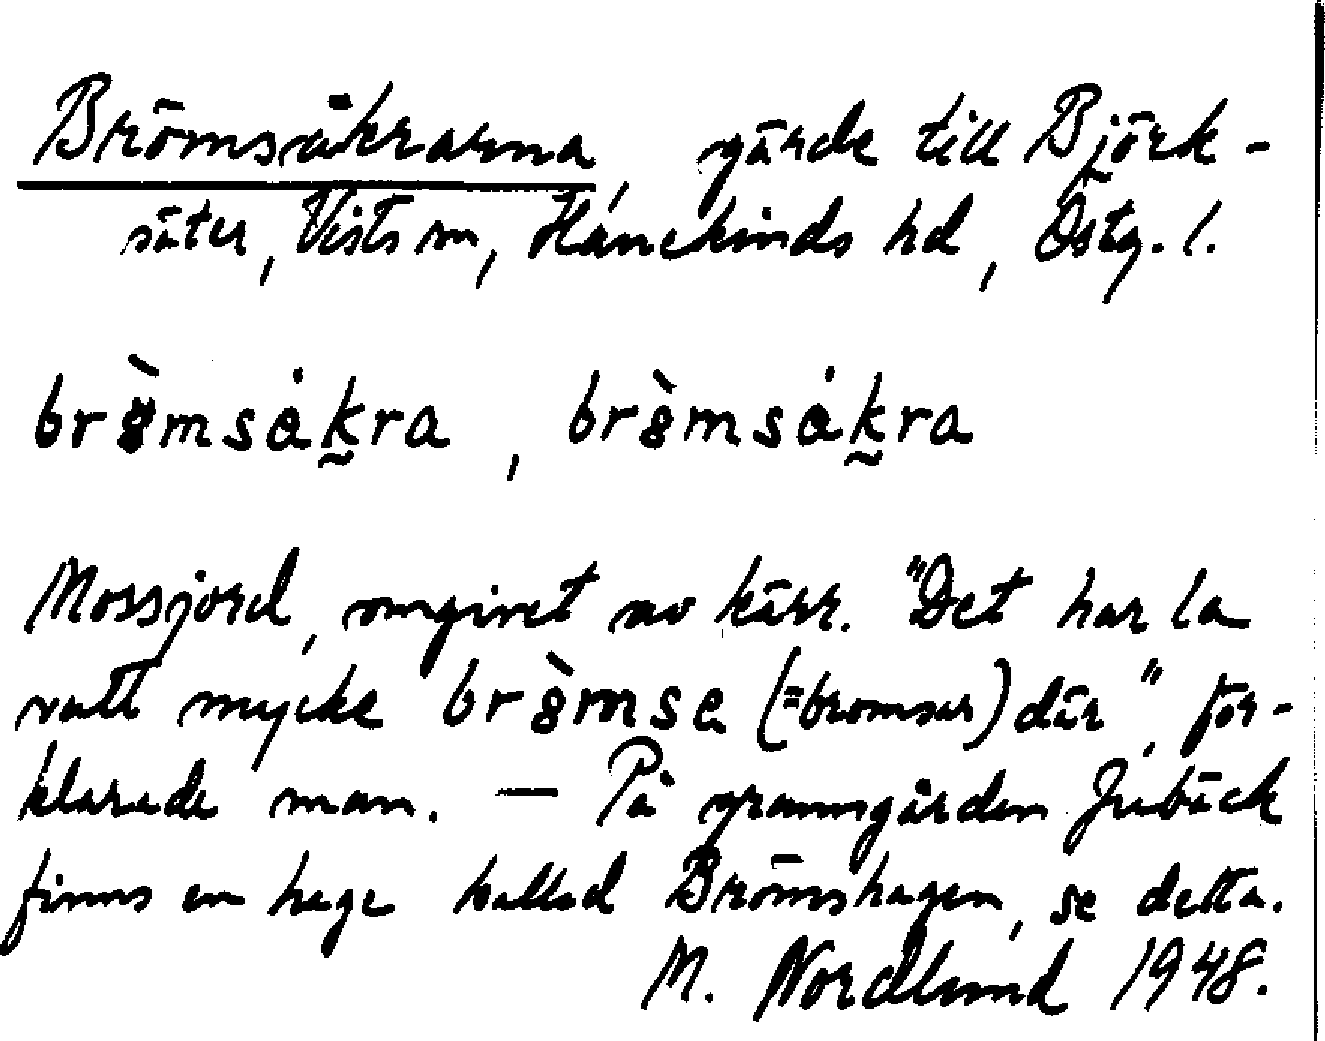 Brömsåkrarna, gärde till Björk-
säter, Vists sn, Hanekinds hd, Östg. l.
brèmsåk̰ra, brèmsåk̰ra
Mossjord, omgivet av kärr. "Det har la
vatt mycke brèmse (=bromsar) där", för-
klarade man. — På granngården
finns en hage kallad Brömshagen, se detta.
M. Nordlund 1948.